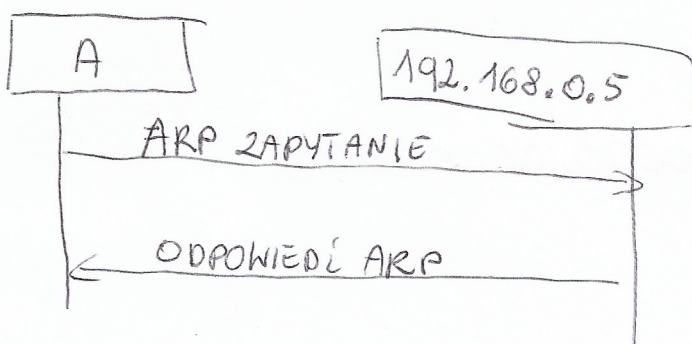 A
192.168.0.5
ARP ZAPYTANIE
ODPOWIEDŹ ARP